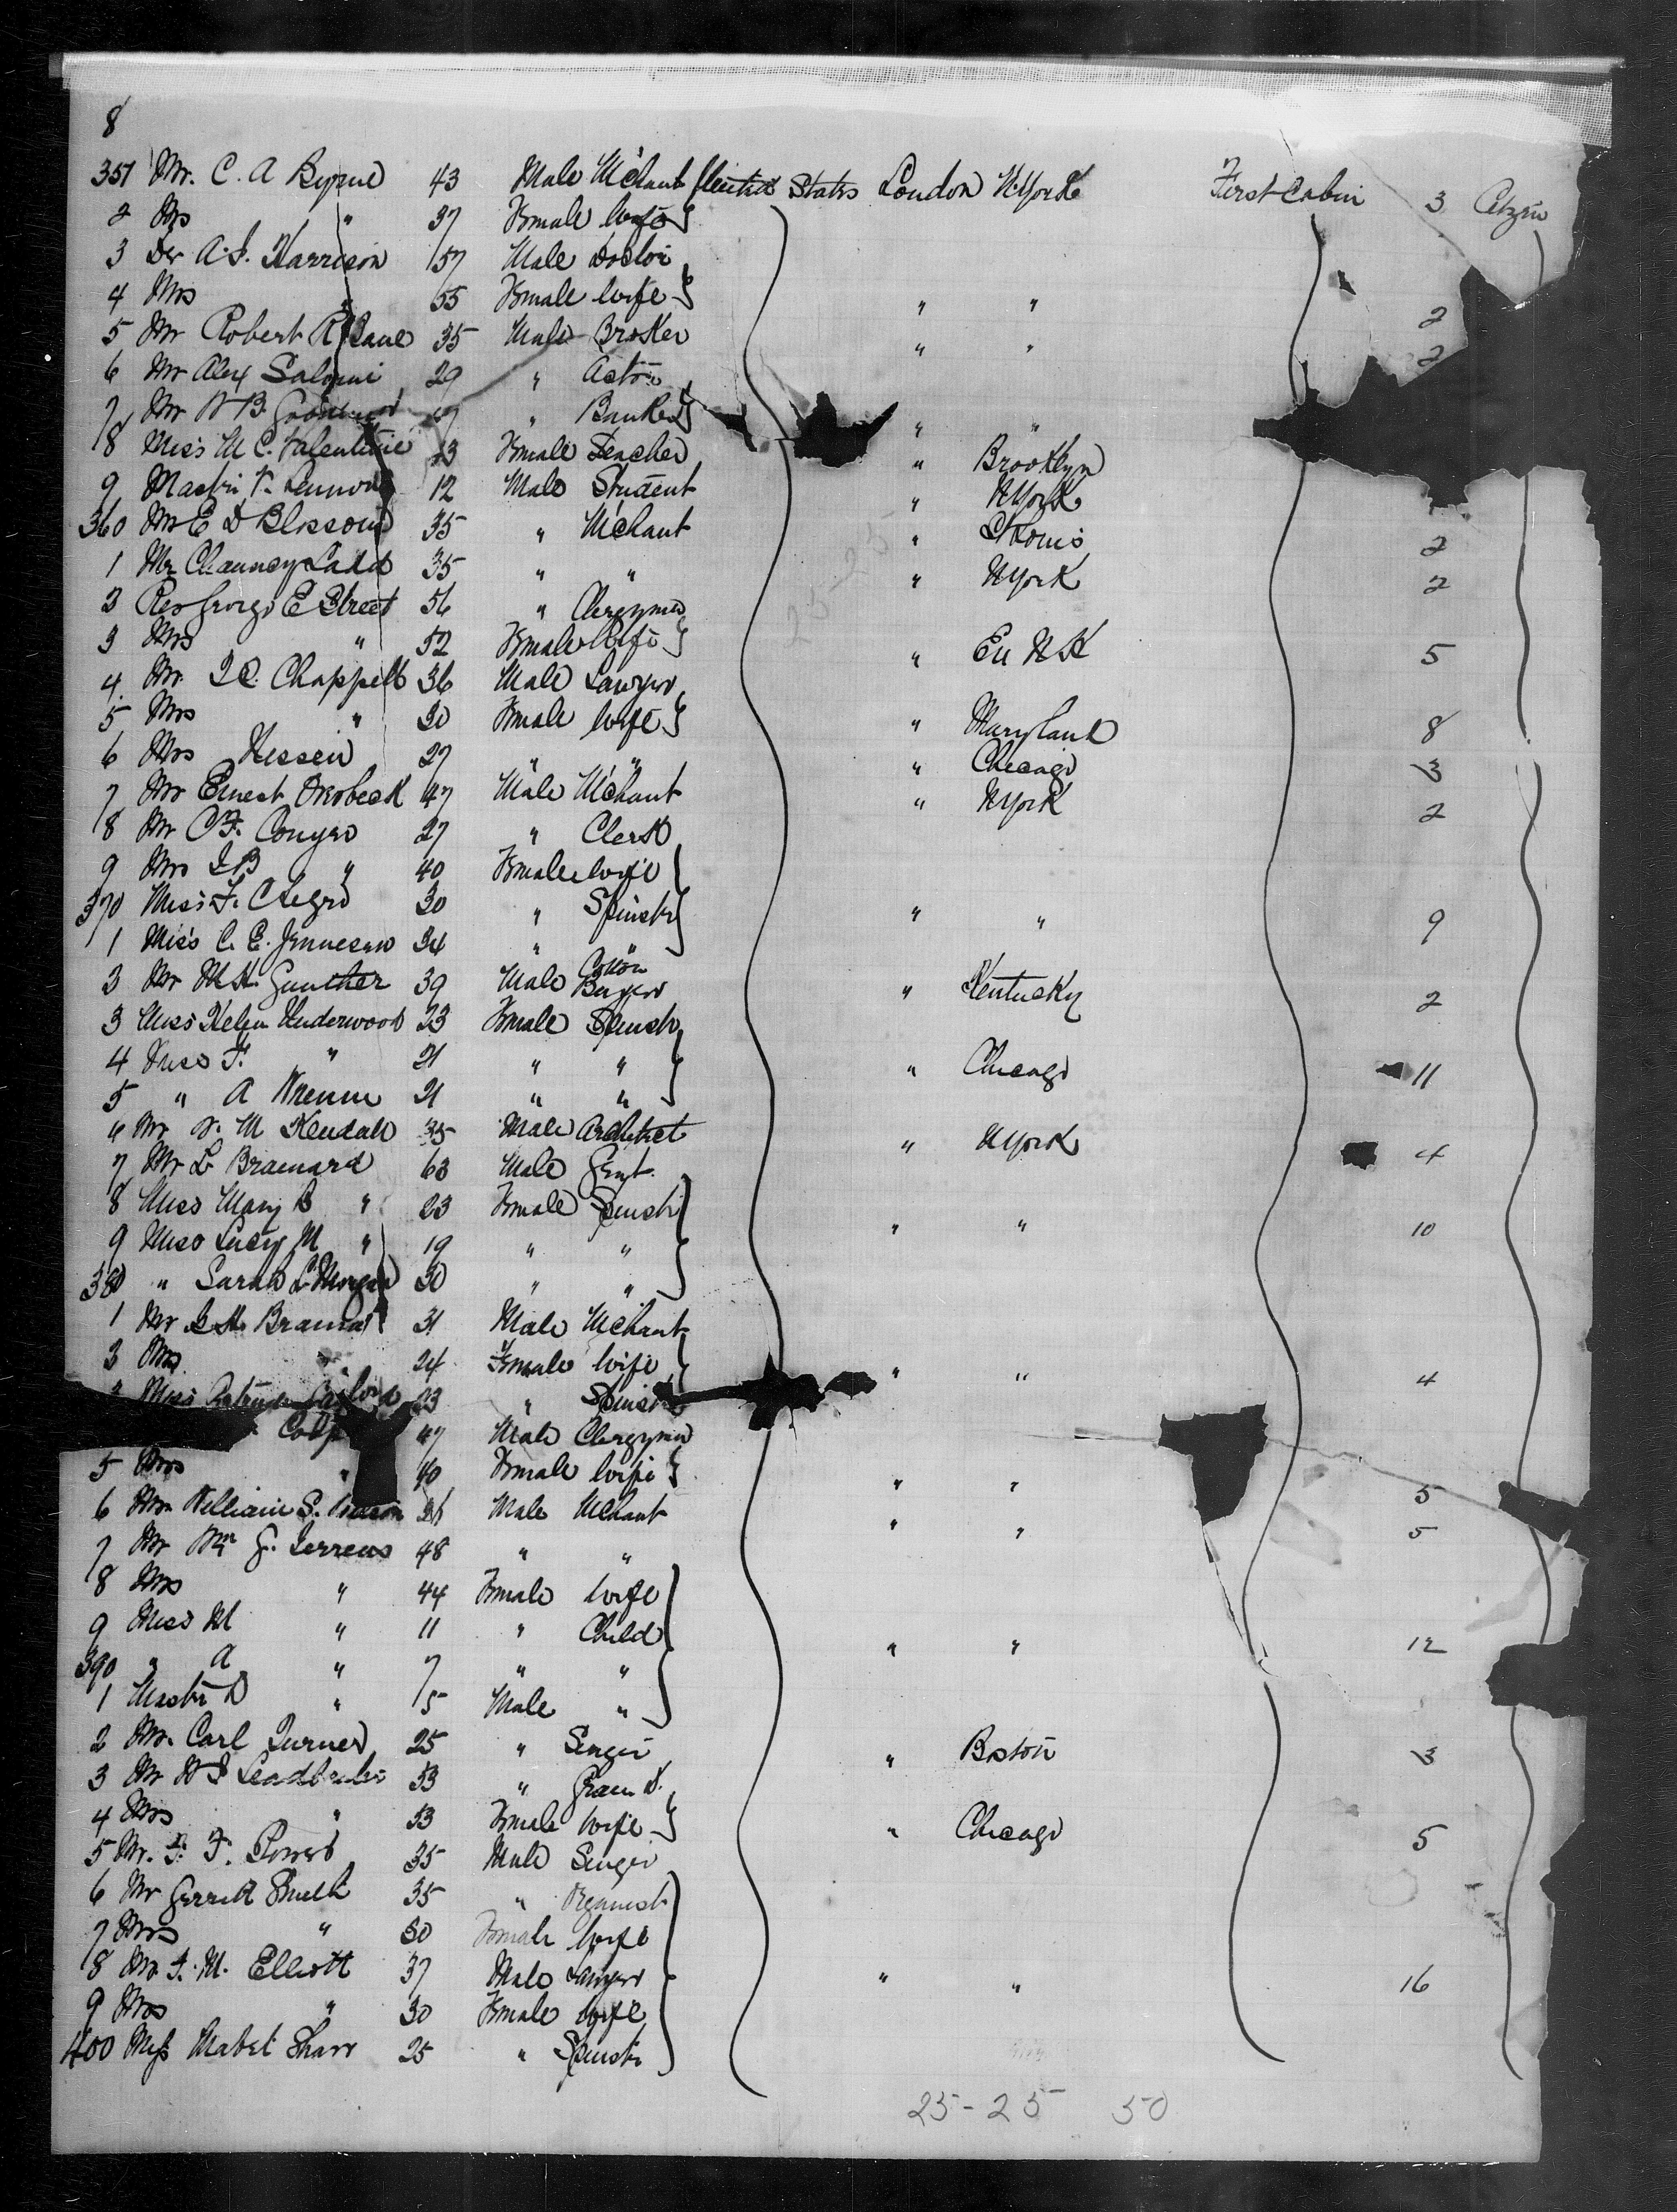 8
351 Mr. C. A Byrne 43 Male Mchant United States London N. York First Cabin 3 Citzen
2 Mrs " 37 Female Wife
3 Dr A. J. Harrison 57 Male Doctor
4 Mrs 55 Female Wife " " 2
5 Mr Robert R Lane 35 Male Broker " " 2
6 Mr Alex Salvini 29 " Actor
7 Mr W B. " Banker " "
8 Miss M C. Valentine 23 Female Teacher " Brooklyn
9 Master V. 12 Male Student " N York
360 Mr E D Blossom 35 " Mchant " St Louis 2
1 Mr Chauncey Ladd 35 " " " N York 2
2 Rev George E Street 56 " Clergyman
3 Mrs " 52 Female Wife " Ex N H 5
4 Mr. Chappell 36 Male Lawyer
5 Mrs " 30 Female Wife " Maryland 8
6 Mrs Hessen 27 " " " Chicago 3
7 Mr Ernest Overbeck 47 Male Mchant " N York 2
8 Mr C F. Conyers 27 " Clerk
9 Mrs " 40 Female Wife
370 Miss F. 30 " Spinster " " 9
1 Miss C. E. Jenneson 34 " "
2 Mr M H. Gunther 39 Male Cotton Buyer " Kentucky 2
3 Miss Helen Underwood 23 Female Spinster
4 Miss F. " 21 " " " Chicago 11
5 " A Wrenn 21 " "
6 Mr W. M Kendall 35 Male Architect " N York 4
7 Mr L Brainard 63 Male Gent.
8 Miss Mary B " 23 Female Spinster
9 Miss Lucy M " 19 " " " " 10
380 " Sarah L Morgan 30 " "
1 Mr 31 Male Mchant
2 Mrs " 24 Female Wife " " 4
3 Miss 23 " Spinster
47 Male Clergyman
5 Mrs " 40 Female Wife " " 5
6 Mr. William S. Male Mchant " " 5
7 Mr Wm G. 48 " "
8 Mrs " 44 Female Wife
9 Miss M " 11 " Child " " 12
390 " A " 7 " "
1 Master D " 5 Male "
2 Mr. Carl Turner 25 " Singer " Boston 3
3 Mr W J Leadbeater 53 " Grain D.
4 Mrs " 53 Female Wife " Chicago 5
5 Mr. F. F. Powers 35 Male Singer
6 Mr Gerrit Smith 35 " Organist
7 Mrs " 30 Female Wife
8 Mr F. M. Elliott 37 Male Lawyer " " 16
9 Mrs " 30 Female Wife
400 Miss Mabel Sharr 25 " Spinster
25-25 50